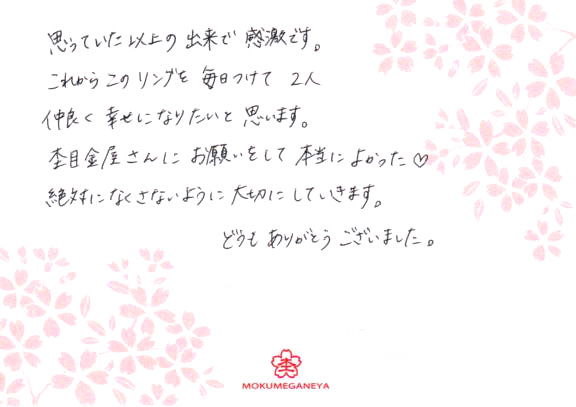 思っていた以上の出来で感激です。
これからこのリングを毎日つけて2人
仲良く幸せになりたいと思います。
杢目金屋さんにお願いをして本当によかった♡
絶対になくさないように大切にしていきます。
どうもありがとうございました。
杢
MOKUMEGANEYA